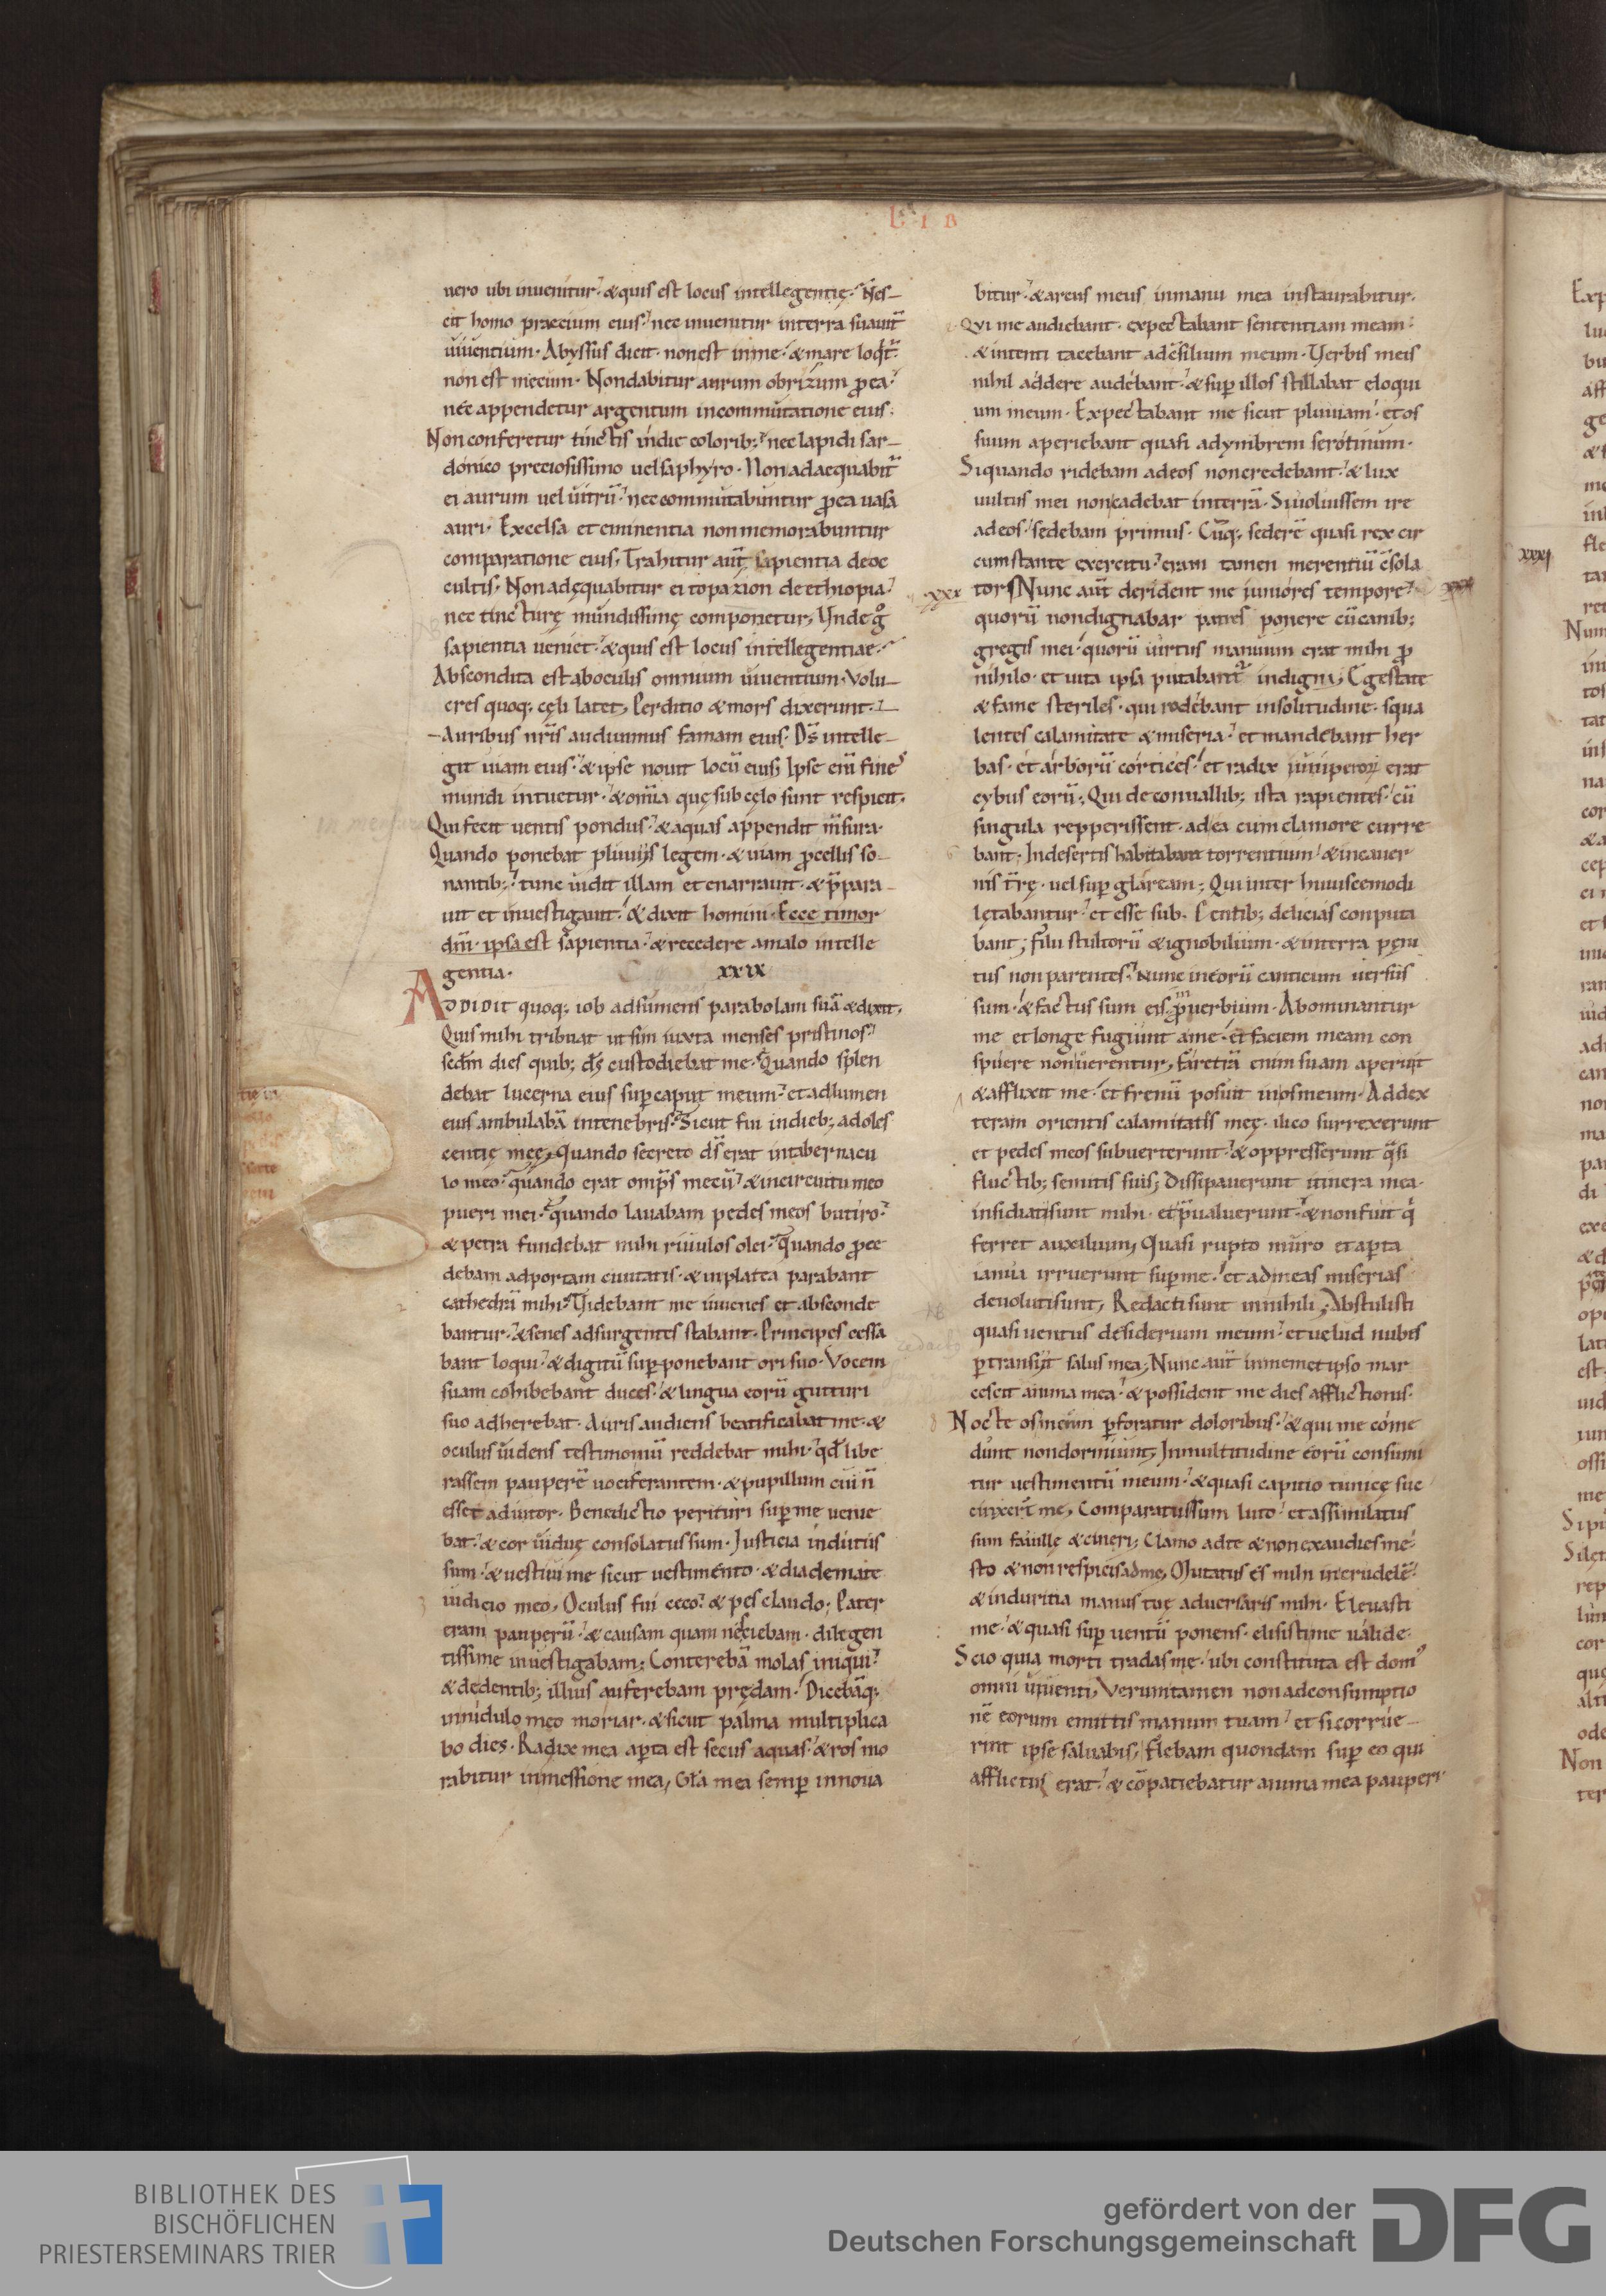 LIB
uero ubi inuenitur? & quis est locus intellegentię? Nes-
cit homo praecium eius? nec inuenitur in terra suauit̄
uiuentium. Abyssus dicit. non est in me. & mare loqt̄.
non est mecum. Non dabitur aurum obrizum ꝓ ea.
nec appendetur argentum in commutatione eius.
Non conferetur tinctis indię colorib; nec lapidi sar-
donico preciosissimo uel saphyro. Non adaequabit̄
ei aurum uel uitrū. nec commutabuntur ꝓ ea uasa
auri. Excelsa et eminentia non memorabuntur
comparatione eius. Trahitur aut̄ sapientia de oc
cultis. Non adęquabitur ei topazion de ethiopia.
nec tincturę mundissimę componetur. Unde gͦ
sapientia ueniet? & quis est locus intellegentiae?
Abscondita est ab oculis omnium uiuentium. Volu-
cres quoq; cęli latet. Perditio & mors dixerunt.
Auribus nr̄is audiuimus famam eius. Ds̄ intelle-
git uiam eius. & ipse nouit locū eius. Ipse eni̅ fines
mundi intuetur. & om̄ia quę sub cęlo sunt respicit.
Qui fecit uentis pondus. & aquas appendit m̄sura.
Quando ponebat pluuijs legem. & uiam ꝓcellis so-
nantib; tunc uidit illam et enarrauit. & p̄para-
uit et inuestigauit. & dixit homini. Ecce timor
dn̄i. ipsa est sapientia. & recedere a malo intelle
gentia.
xxix
ADDIDIT quoq; iob adsumens parabolam suā & dixit.
Quis mihi tribuat ut sim iuxta menses pristinos?
sedm̄ dies quib; ds̄ custodiebat me. Quando splen
debat lucerna eius sup caput meum? et ad lumen
eius ambulabā in tenebris. Sicut fui in dieb; adoles
centię meę. Quando secreto ds̄ erat in tabernacu
lo meo? quando erat omp̄s mecū? & in circuitu meo
pueri mei. Quando lauabam pedes meos butiro?
& petra fundebat mihi riuulos olei? Quando ꝓce
debam ad portam ciuitatis. & in platea parabant
cathedrā mihi? Uidebant me iuuenes et absconde
bantur. & senes adsurgentes stabant. Principes cessa
bant loqui? & digitū sup ponebant ori suo. Vocem
suam cohibebant duces. & lingua eorū gutturi
suo adherebat. Auris audiens beatificabat me. &
oculus uidens testimoniū reddebat mihi. qd̄ libe
rassem pauperē uociferantem. & pupillum cui n̄
esset adiutor. Benedictio perituri sup me uenie
bat. & cor uiduę consolatus sum. Justicia indutus
sum. & uestiui me sicut uestimento. & diademate
iudicio meo. Oculus fui ceco? & pes claudo. Pater
eram pauperū. & causam quam nesciebam. diligen
tissime inuestigabam. Conterebā molas iniqui?
& de dentib; illius auferebam prędam. Dicebāq;
in nidulo meo moriar. & sicut palma multiplica
bo dies. Radix mea apta est secus aquas. & ros mo
rabitur in messione mea. Gl̄a mea semp innoua
bitur. & arcus meus in manu mea instaurabitur.
Qui me audiebant. expectabant sententiam meam.
& intenti tacebant ad c̄silium meum. Uerbis meis
nihil addere audebant. & sup illos stillabat eloqui
um meum. Expectabant me sicut pluuiam. et os
suum aperiebant quasi ad ymbrem serotinum.
Si quando ridebam ad eos non credebant. & lux
uultus mei non cadebat in terrā. Si uoluissem ire
ad eos. sedebam primus. Cūq; sederē quasi rex cir
cumstante exercitu. eram tamen merentiū c̄sola
xxx tor. Nunc aut̄ derident me iuniores tempore. xxx
quorū non dignabar patres ponere cū canib;
gregis mei. quorū uirtus manuum erat mihi ꝓ
nihilo. et uita ipsa putabantur indigni. Egestate
& fame steriles. qui rodebant in solitudine. squa
lentes calamitate & miseria. et mandebant her
bas. et arborū cortices. et radix iuniperorū erat
cybus eorū. Qui de conuallib; ista rapientes. cū
singula repperissent. ad ea cum clamore curre
bant. In desertis habitabant torrentium. & in cauer
nis t̄rę. uel sup glaream. Qui inter huiuscemodi
lętabantur. et esse sub sentib; delicias conputa
bant; filii stultorū & ignobilium. & in terra pęni
tus non parentes. Nunc in eorū canticum uersus
sum. & factus sum eis ꝓuerbium. Abominantur
me et longe fugiunt a me. et faciem meam con
spuere non uerentur. Faretrā enim suam aperuit
& afflixit me. et frenū posuit in os meum. Ad dex
teram orientis calamitatis meę. ilico surrexerunt
et pedes meos subuerterunt. & oppresserunt q̄si
fluctib; semitis suis; Dissipauerunt itinera mea.
insidiati sunt mihi. et p̄ualuerunt. & non fuit q̇
ferret auxilium. Quasi rupto muro et apta
ianua irruerunt sup me. et ad meas miserias
deuoluti sunt. Redacti sunt in nihili. Abstulisti
quasi uentus desiderium meum. et uelud nubis
ptransijt salus mea. Nunc aut̄ in memet ipso mar
cescit anima mea. & possident me dies afflictionis.
Nocte os meum pforatur doloribus. & qui me come
dunt non dormiunt. In multitudine eorū consumi
tur uestimentū meum. & quasi capitio tunicę suę
cinxert̄ me. Comparatus sum luto. et assimilatus
sum fauille & cineri. Clamo ad te & non exaudies me.
sto & non respicis ad me. Mutatus es mihi in crudelē.
& in duritia manus tuę aduersaris mihi. Eleuasti
me. & quasi sup uentū ponens. elisisti me ualide.
Scio quia morti tradas me. ubi constituta est dom'
omni uiuenti. Verumtamen non ad consumptio
nē eorum emittis manum tuam. et si corrue-
rint ipse saluabis. Flebam quondam sup eo qui
afflictus erat. & cōpatiebatur anima mea pauperi
xxxi
BIBLIOTHEK DES
BISCHÖFLICHEN
PRIESTERSEMINARS TRIER
gefördert von der
Deutschen Forschungsgemeinschaft
DFG